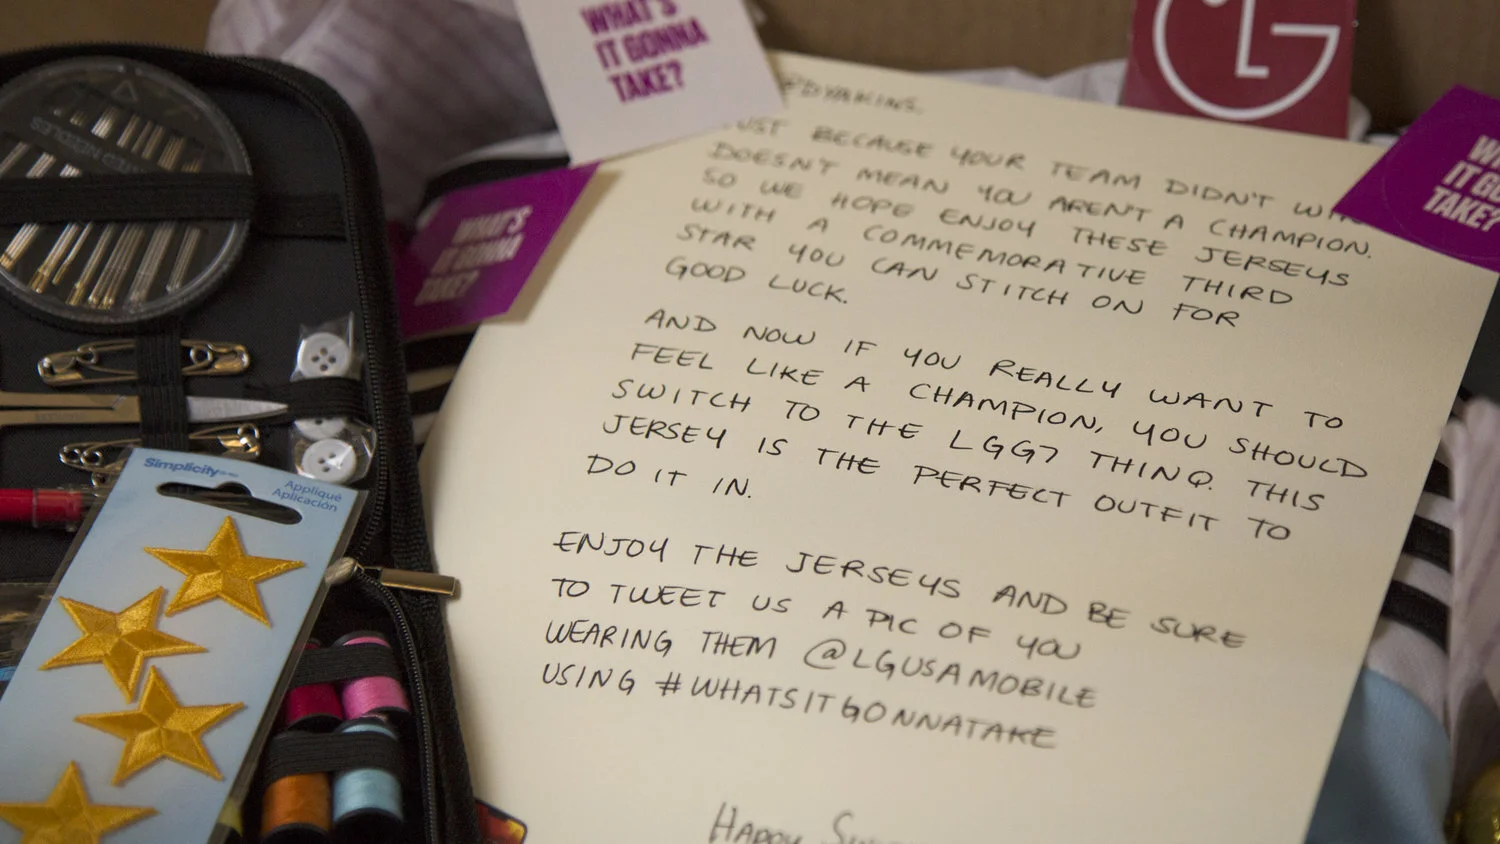 WHAT'S
IT GONNA
TAKE?
LG
WHAT'S
IT GONNA
TAKE?
IT GO
TAKE?
NEEDLES
Simplicity
Appliqué
Aplicación
@DVAKINS.
JUST BECAUSE YOUR TEAM DIDN'T WIN
DOESN'T MEAN YOU AREN'T A CHAMPION.
SO WE HOPE ENJOY THESE JERSEYS
WITH A COMMEMORATIVE THIRD
STAR YOU CAN STITCH ON FOR
GOOD LUCK.
AND NOW IF YOU REALLY WANT TO
FEEL LIKE A CHAMPION, YOU SHOULD
SWITCH TO THE LGG7 THINQ. THIS
JERSEY IS THE PERFECT OUTFIT TO
DO IT IN.
ENJOY THE JERSEYS AND BE SURE
TO TWEET US A PIC OF YOU
WEARING THEM @LGUSAMOBILE
USING #WHATSITGONNATAKE
HAPPY